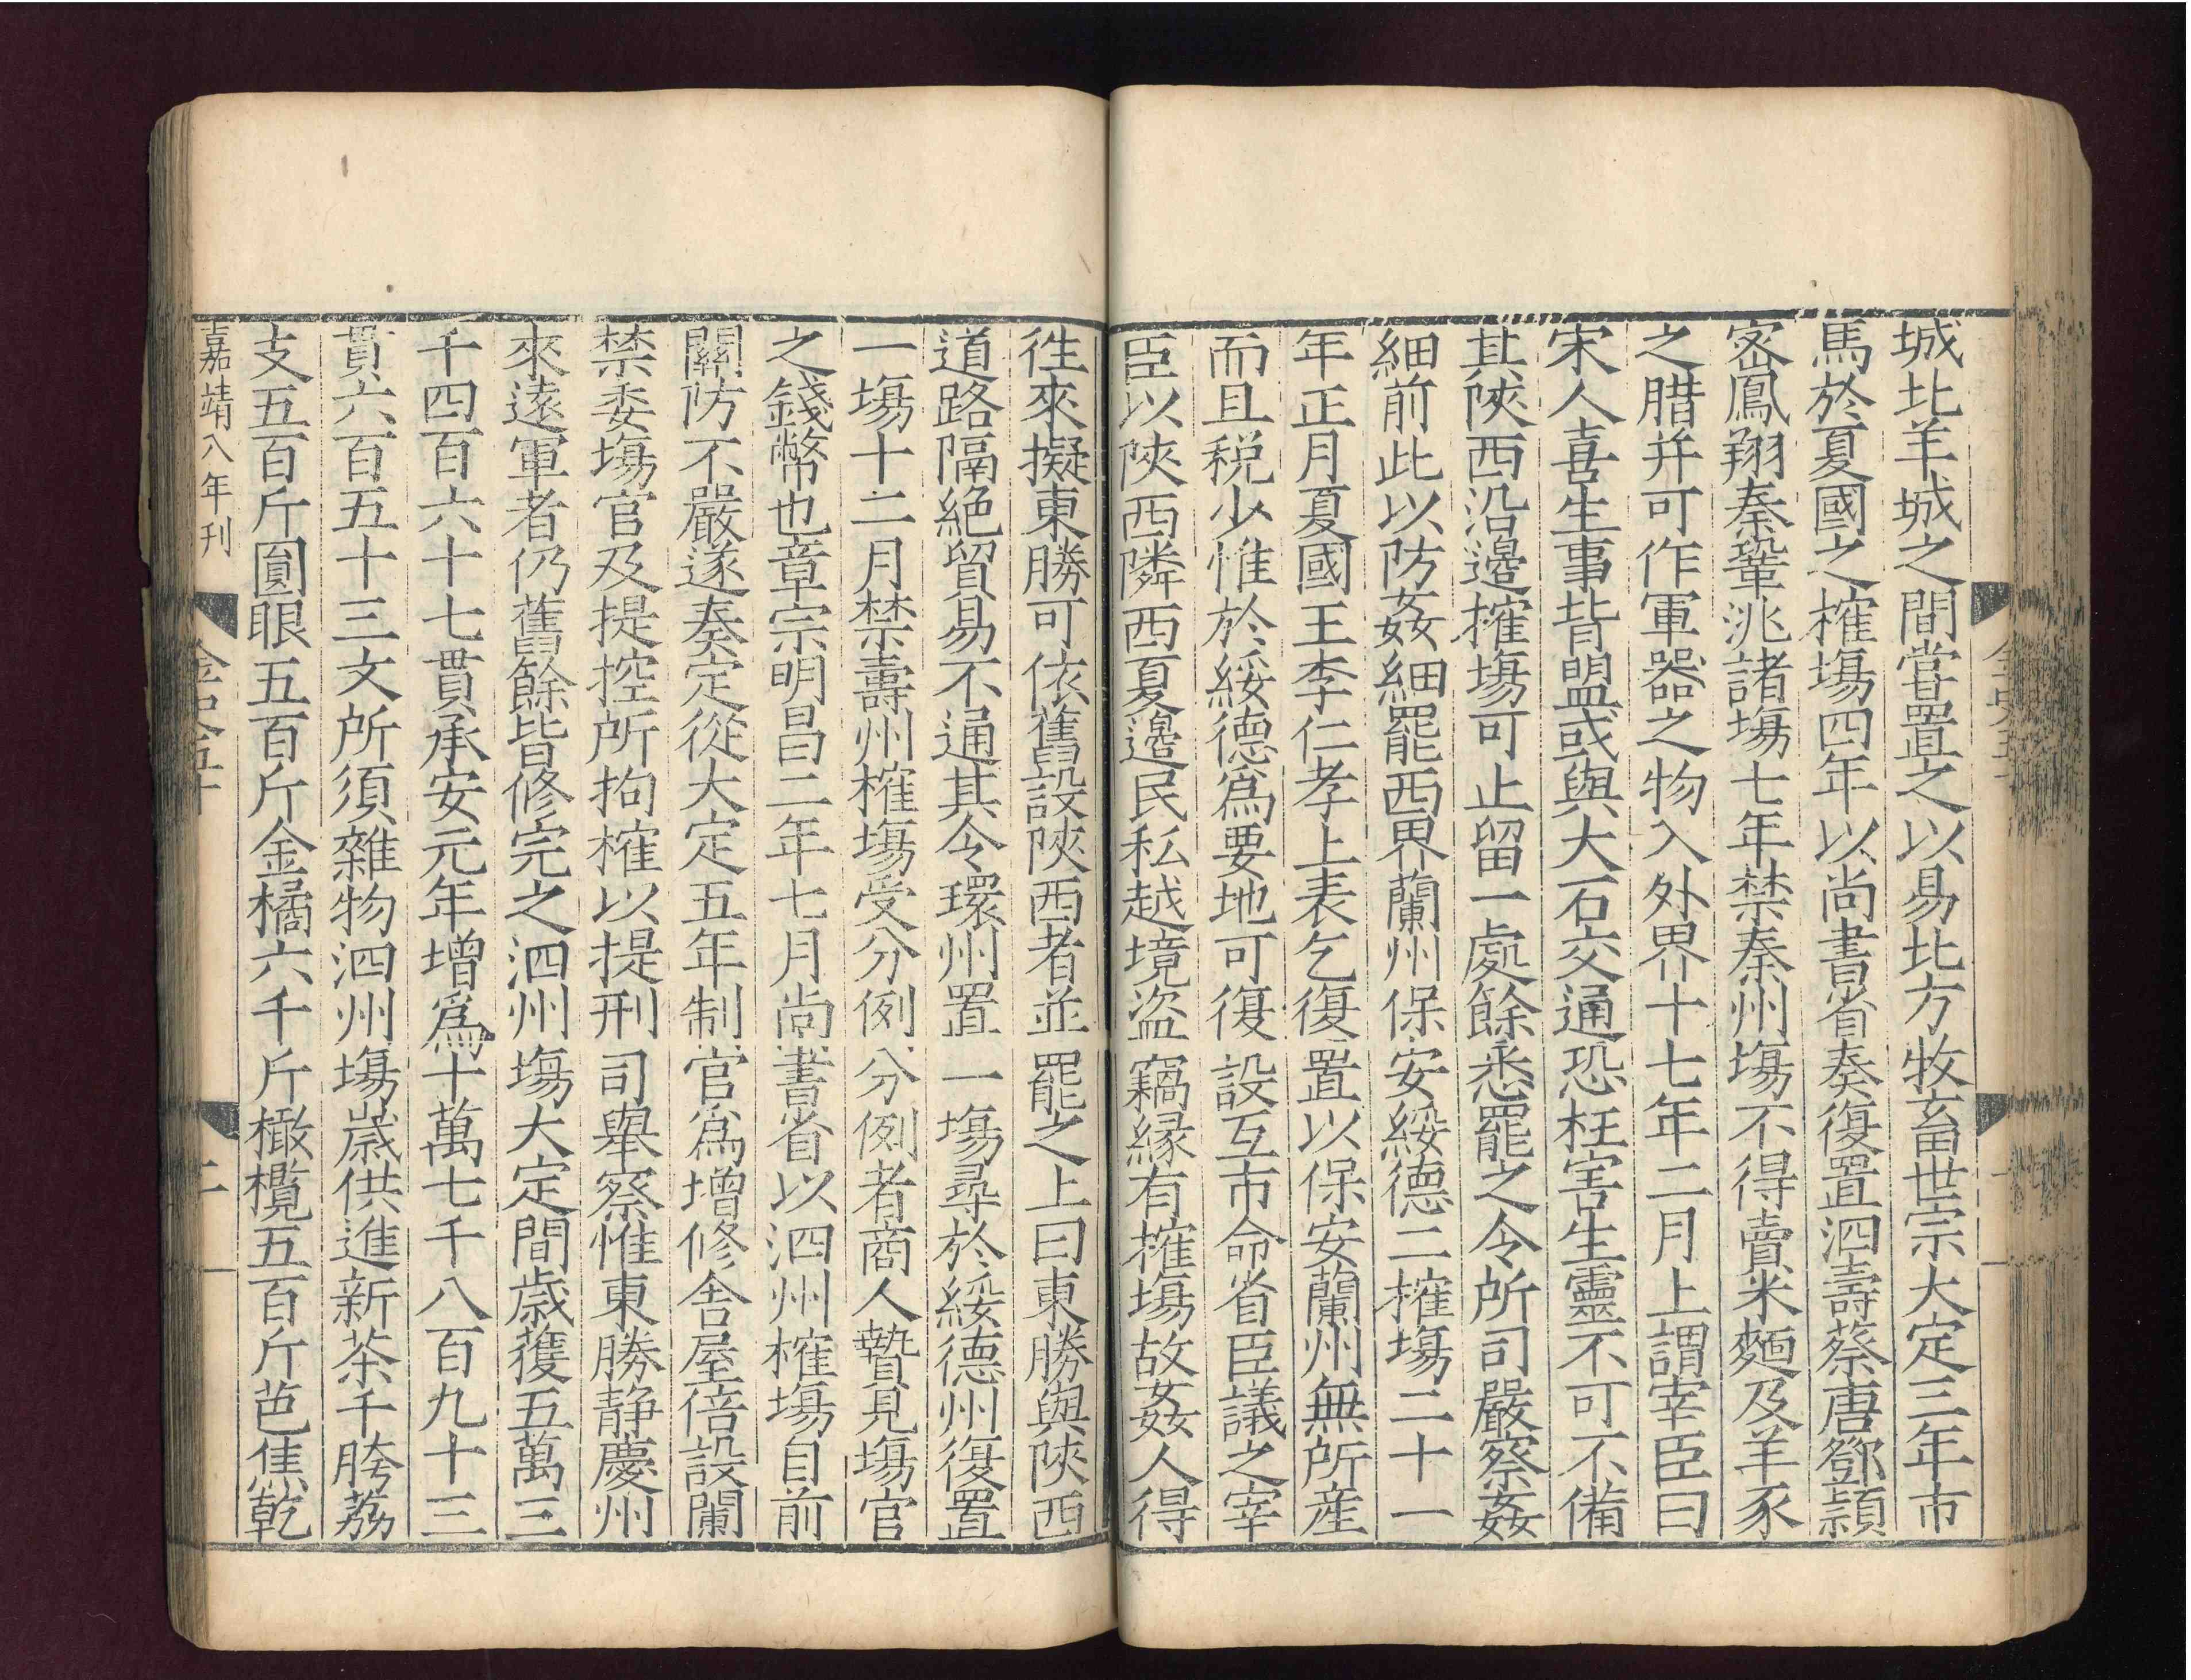 城北羊城之間嘗置之以易北方牧畜世宗大定三年市
馬於夏國之榷塲四年以尚書省奏復置泗壽蔡唐鄧潁
宻鳳翔秦鞏洮諸塲七年禁秦州塲不得賣米麵及羊豕
之腊并可作軍器之物入外界十七年二月上謂宰臣曰
宋人喜生事背盟或與大石交通恐枉害生靈不可不備
其陜西沿邊榷塲可止留一處餘悉罷之令所司嚴察姦
細前此以防姦細罷西界蘭州保安綏德二榷塲二十一
年正月夏國王李仁孝上表乞復置以保安蘭州無所産
而且税少惟於綏德爲要地可復設互市命省臣議之宰
臣以陜西隣西夏邊民私越境盗竊縁有榷塲故姦人得
徃來擬東勝可依舊設陜西者並罷之上曰東勝與陜西
道路隔絶貿易不通其令環州置一塲尋於綏德州復置
一塲十二月禁壽州榷塲受分例分例者商人贄見塲官
之錢幣也章宗明昌二年七月尚書省以泗州榷塲自前
關防不嚴遂奏定從大定五年制官爲增修舎屋倍設闌
禁委塲官及提控所拘榷以提刑司舉察惟東勝静慶州
來逺軍者仍舊餘皆修完之泗州塲大定間歳獲五萬三
千四百六十七貫承安元年增爲十萬七千八百九十三
貫六百五十三文所須雜物泗州塲歳供進新茶千胯荔
支五百斤圓眼五百斤金橘六千斤橄欖五百斤芭焦乾
嘉靖八年刊
金史五十
二